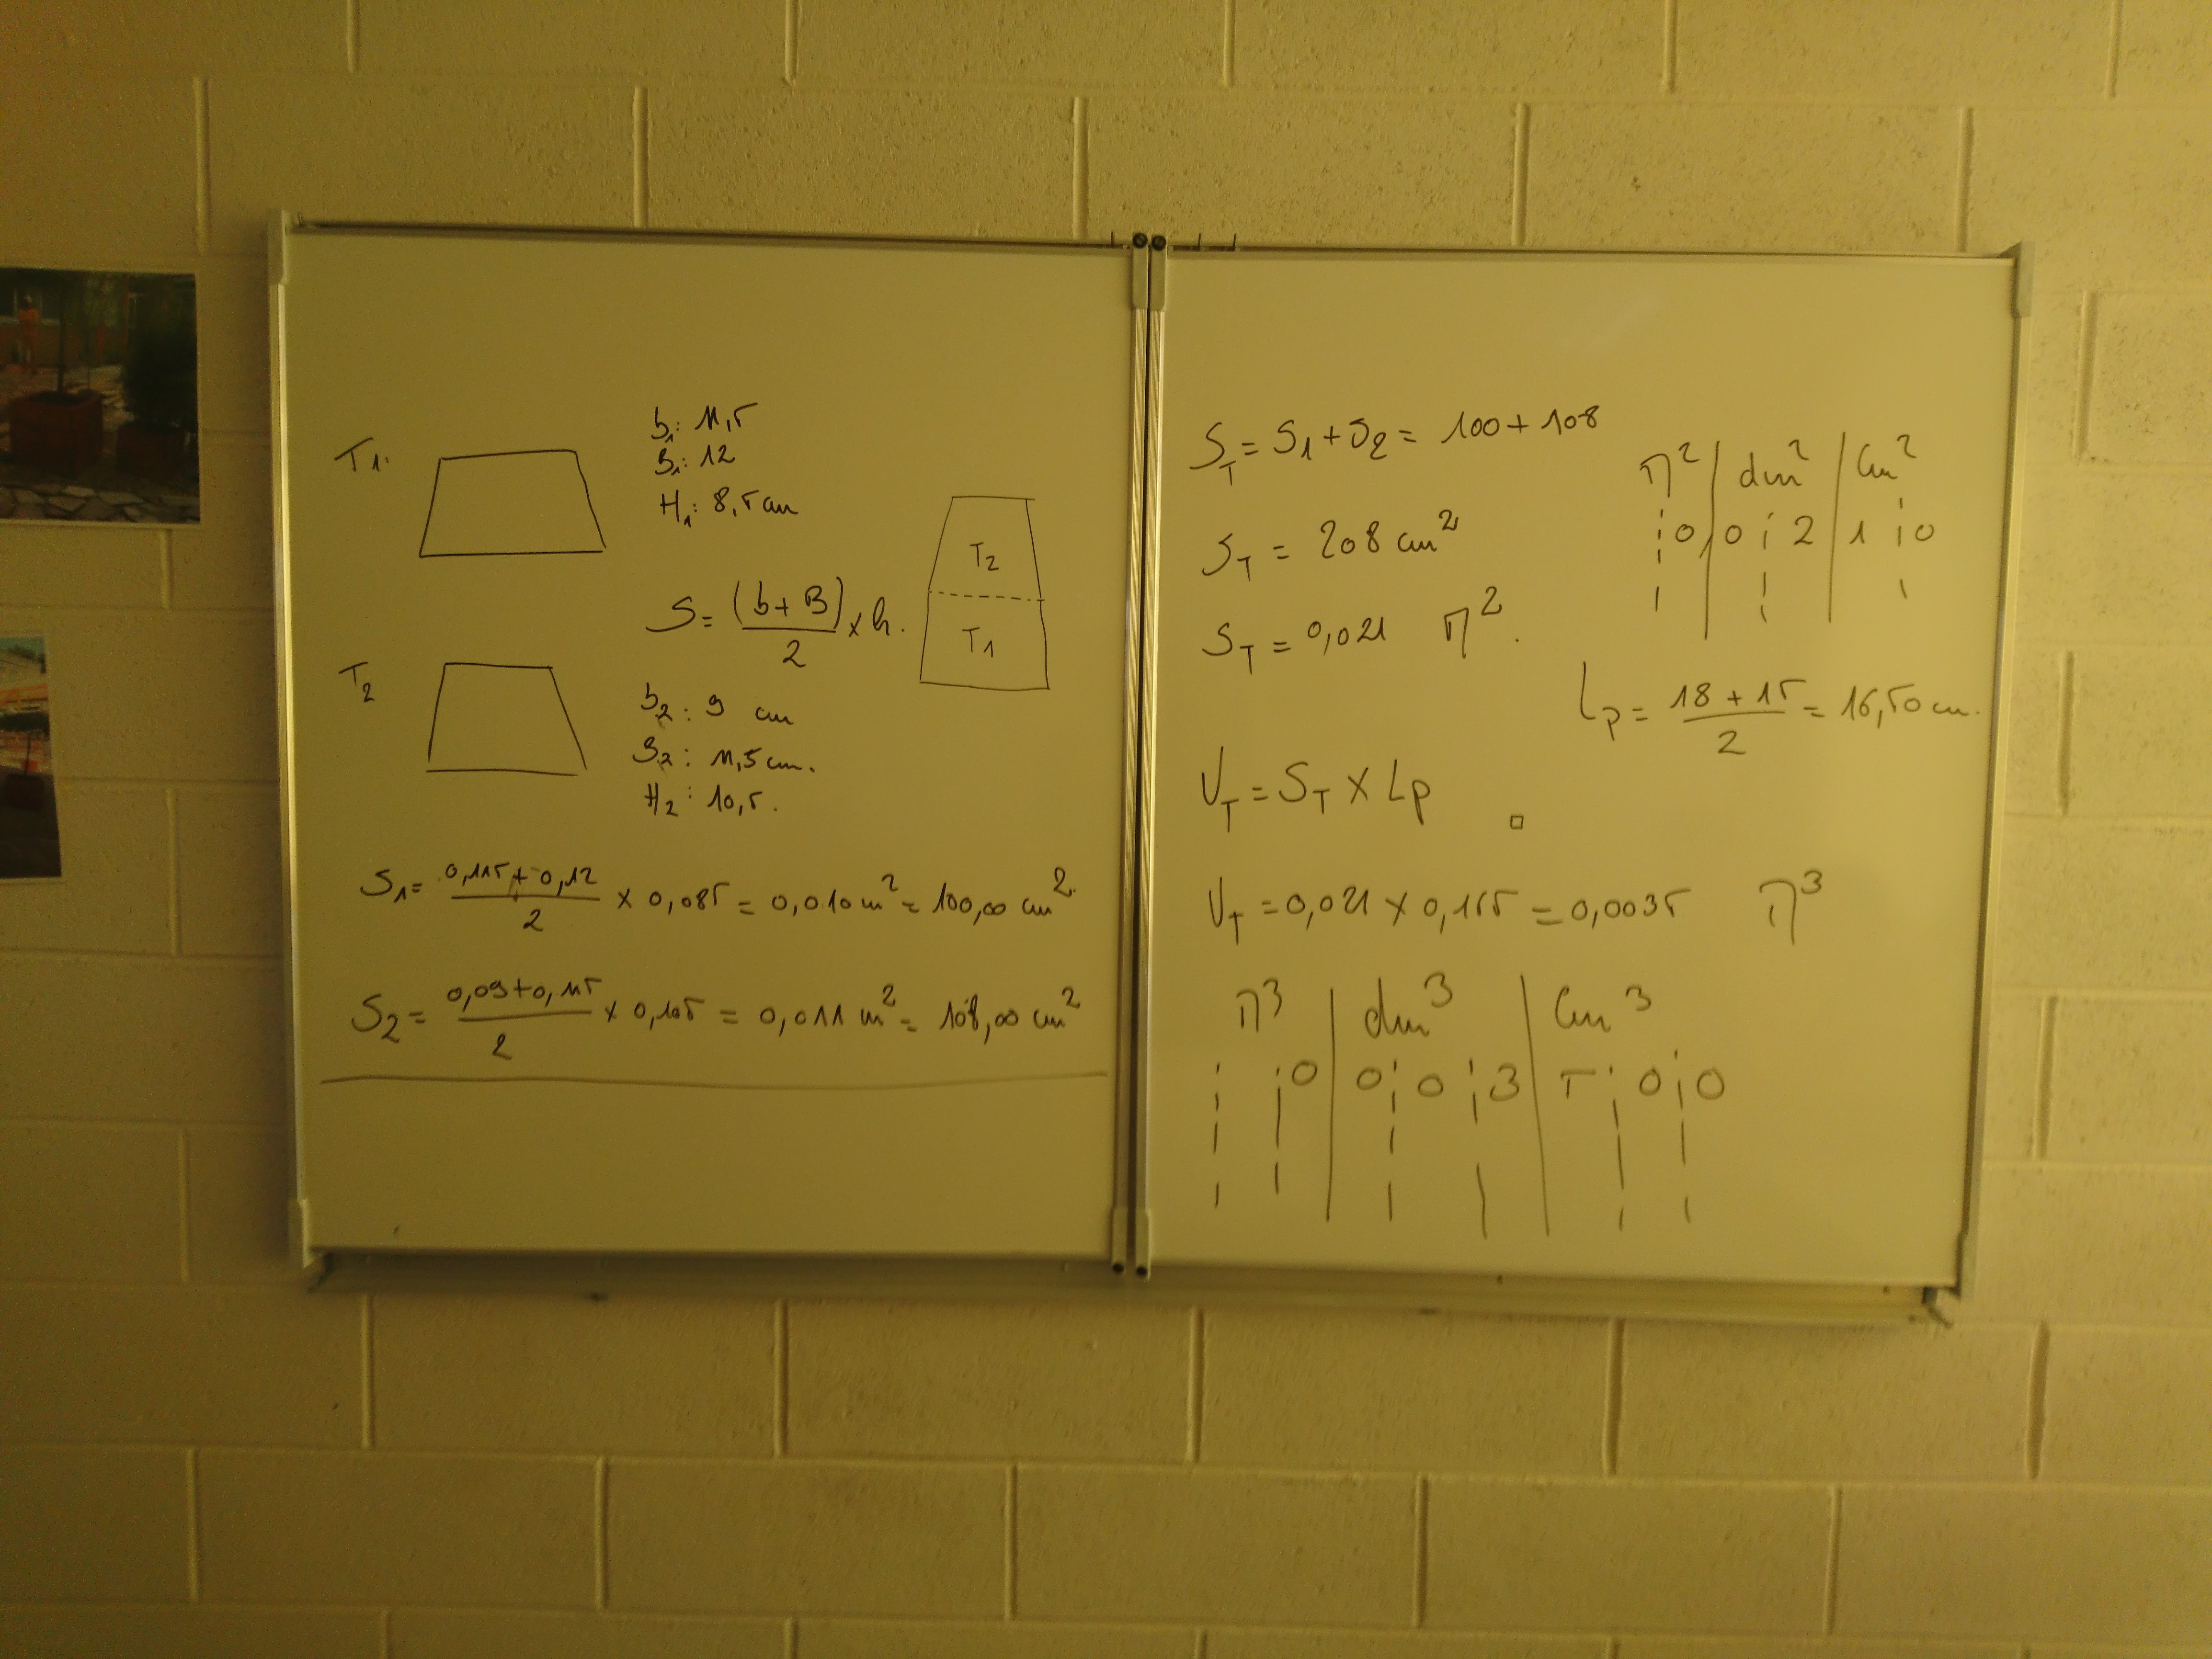 T1:
b1: 11,5
B1: 12
H1: 8,5 cm
T2
T1
S = (b + B)/2 x h.
T2
b2: 9 cm
B2: 11,5 cm.
H2: 10,5.
S1 = (0,115 + 0,12)/2 x 0,085 = 0,010 m² = 100,00 cm².
S2 = (0,09 + 0,115)/2 x 0,105 = 0,011 m² = 108,00 cm²
ST = S1 + S2 = 100 + 108
ST = 208 cm²
ST = 0,021 M².
M² | dm² | cm²
0, | 0 2 | 1 0
Lp = (18 + 15)/2 = 16,50 cm.
VT = ST x Lp
VT = 0,021 x 0,165 = 0,0035 M³
M³ | dm³ | cm³
0 | 0 0 3 | 5 0 0